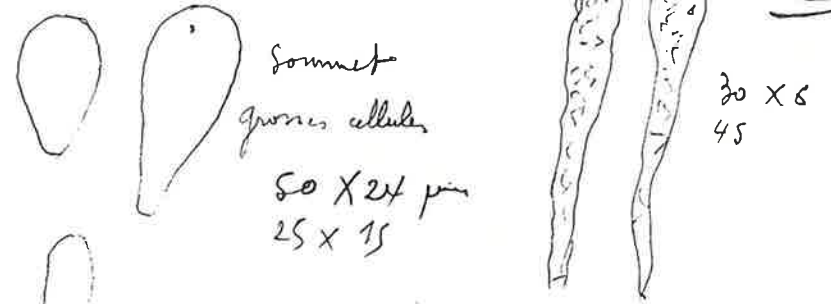 Sommet
grosses cellules
50 X 24
25 X 15
30 X 6
45